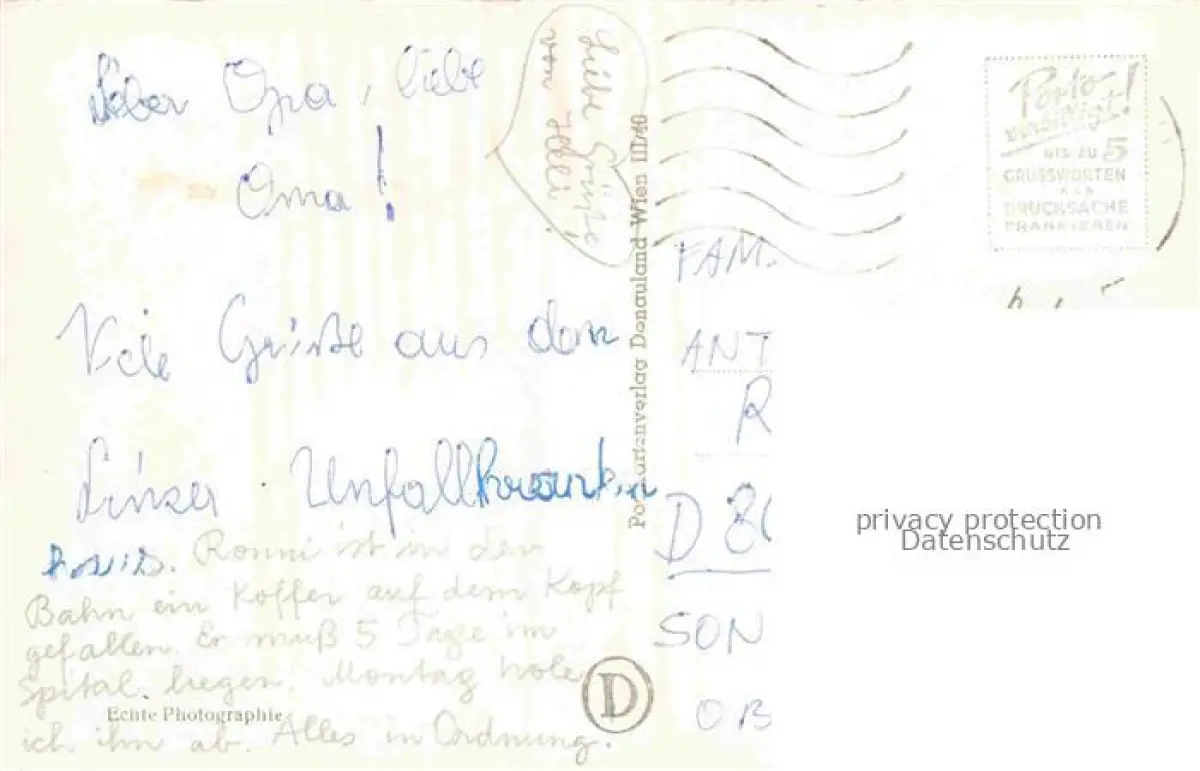 Lieber Opa, liebe
Oma!
Viele Grüße aus dem
Linzer Unfallkranken
haus. Ronni ist in der
Bahn ein Koffer auf dem Kopf
gefallen. Er muß 5 Tage im
Spital liegen. Montag hole
ich ihn ab. Alles in Ordnung.
Echte Photographie
Liebe Grüße
von
Postkartenverlag Donauland Wien III/40
D
Porto
BIS ZU 5
GRUSSWORTEN
ALS
DRUCKSACHE
FRANKIEREN
FAM.
ANT
R
D 8
SON
OB
privacy protection
Datenschutz